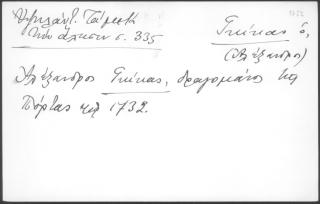 Ὑψηλάντ. Τὰ μετὰ
τὴν ἅλωσιν σ. 335
Γκίκας ὁ,
(Ἀλέξανδρος)
Ἀλέξανδρος Γκίκας, δραγομάνος τῆς
Πόρτας 1732.